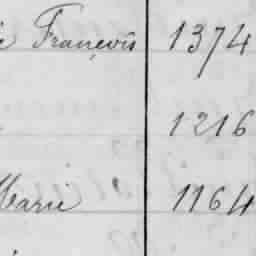 François 1374
1216
Marie 1164